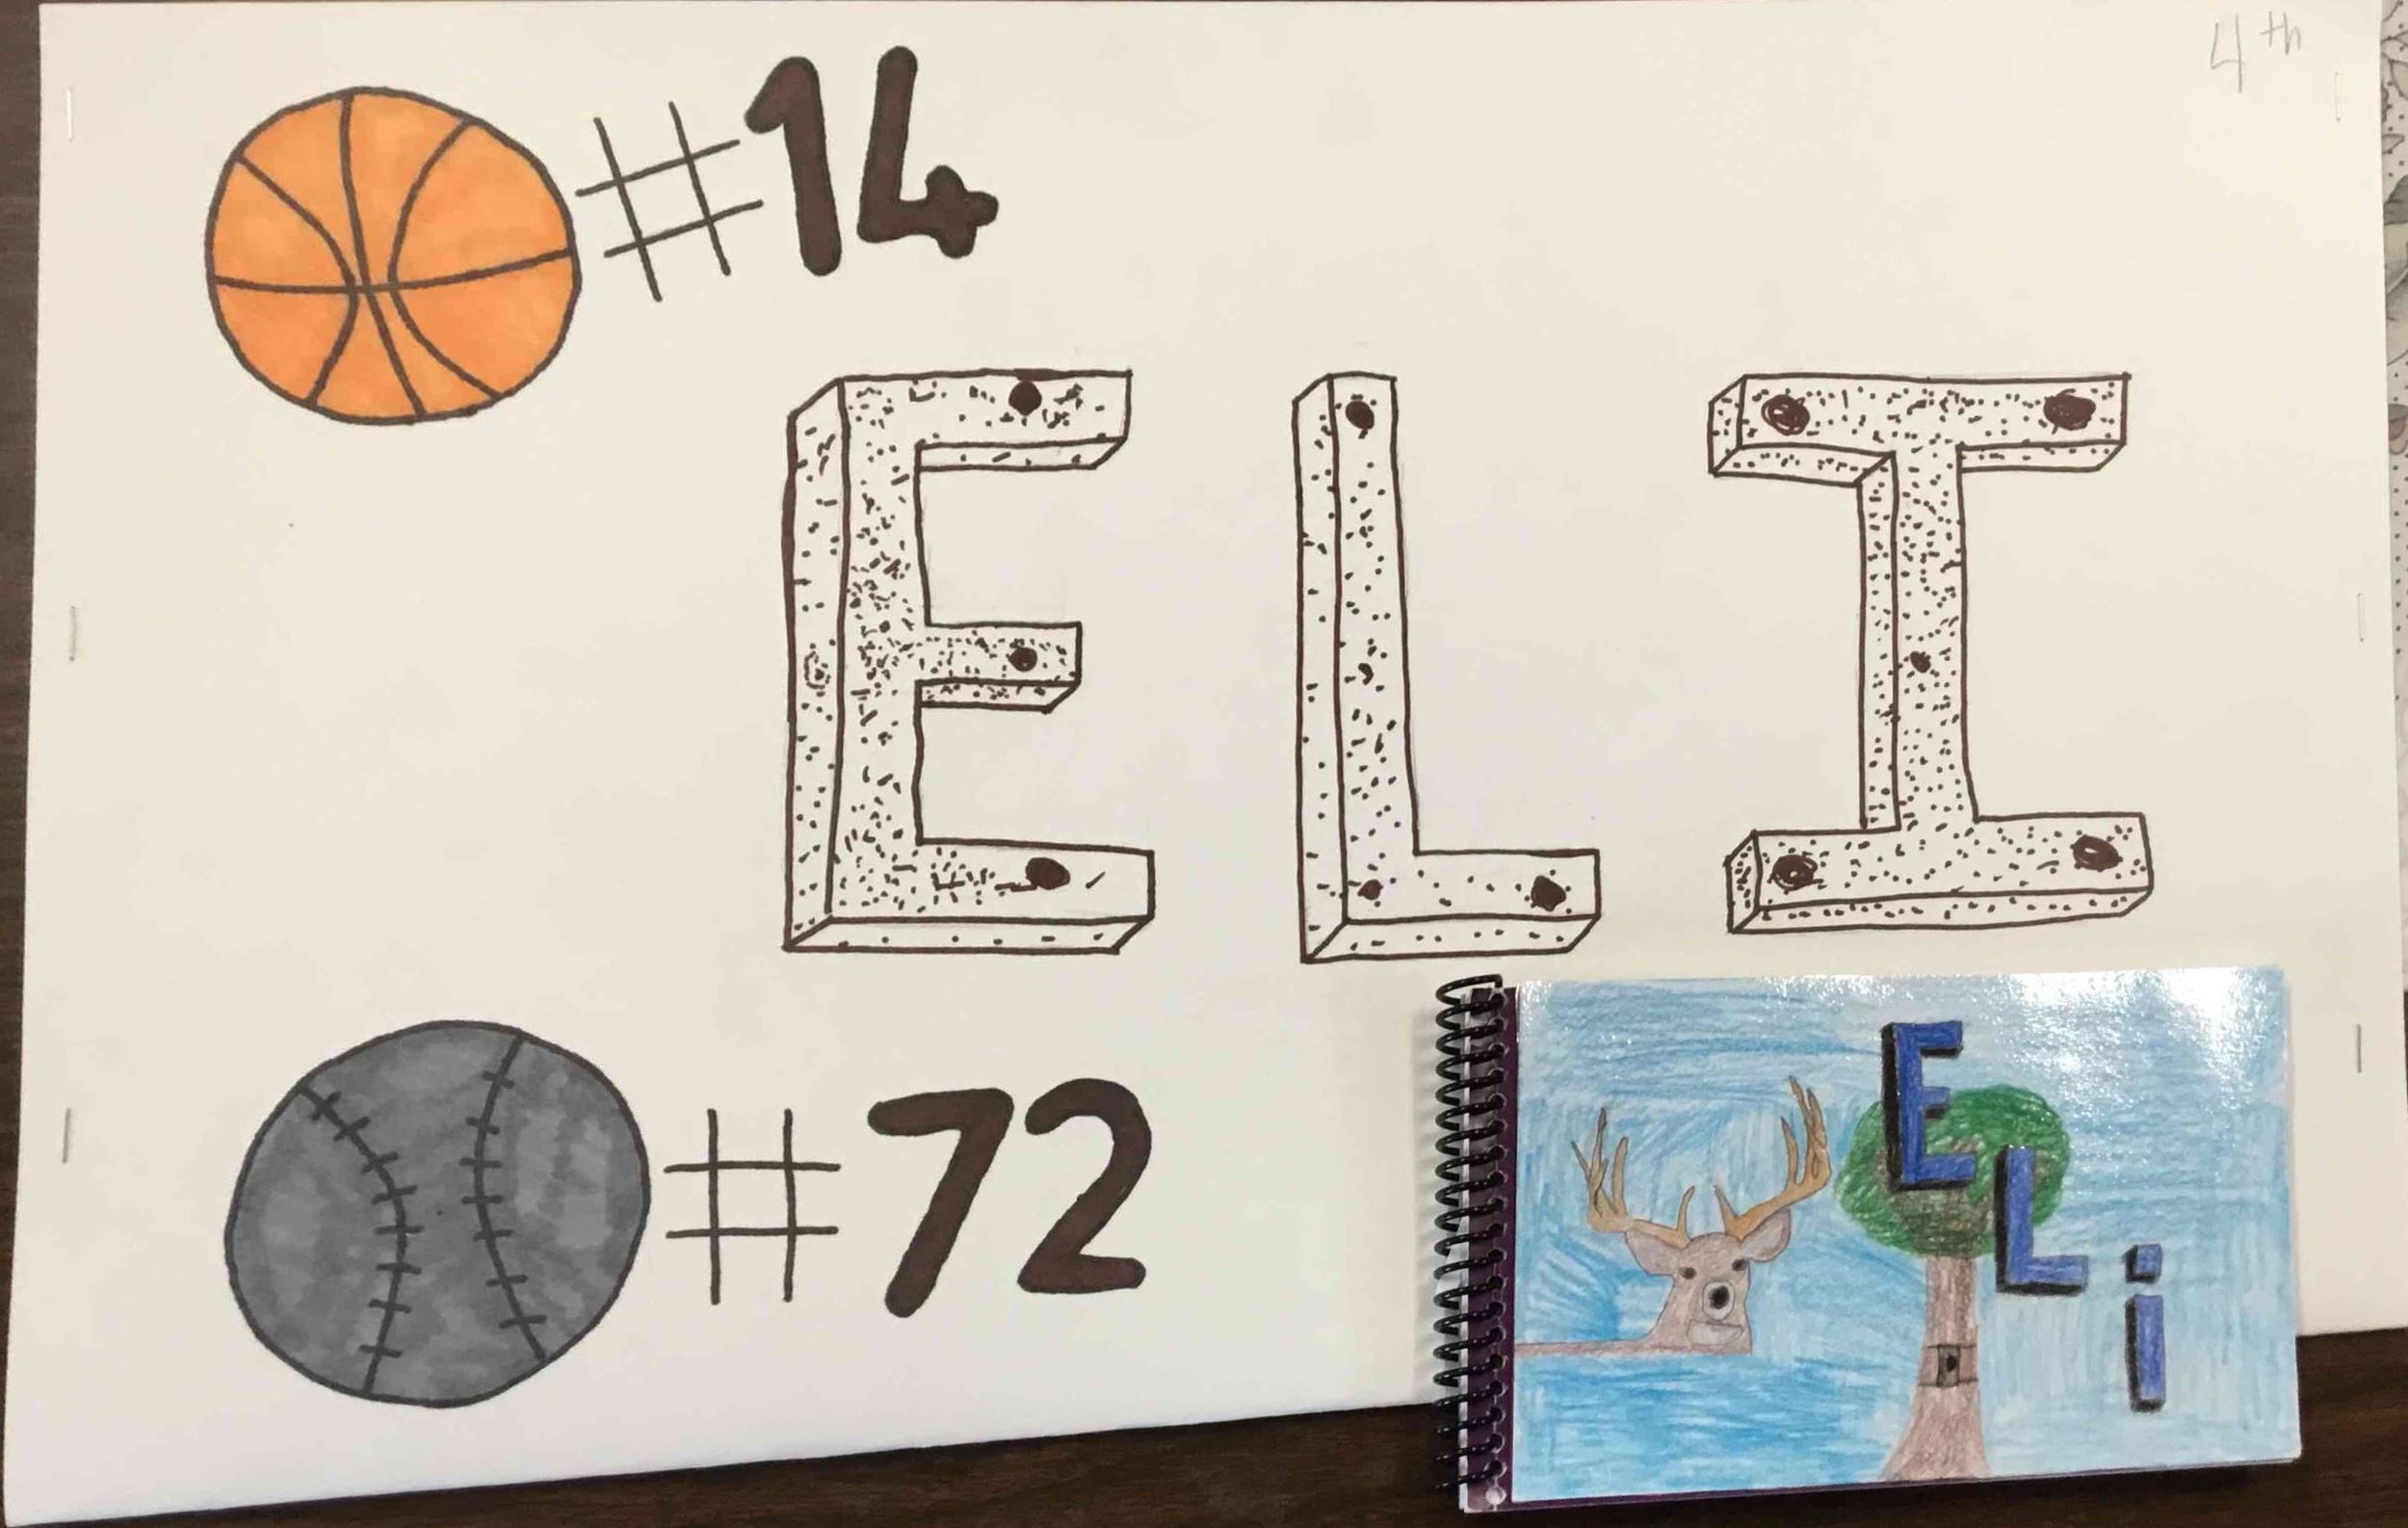 4th
#14
ELI
#72
ELi